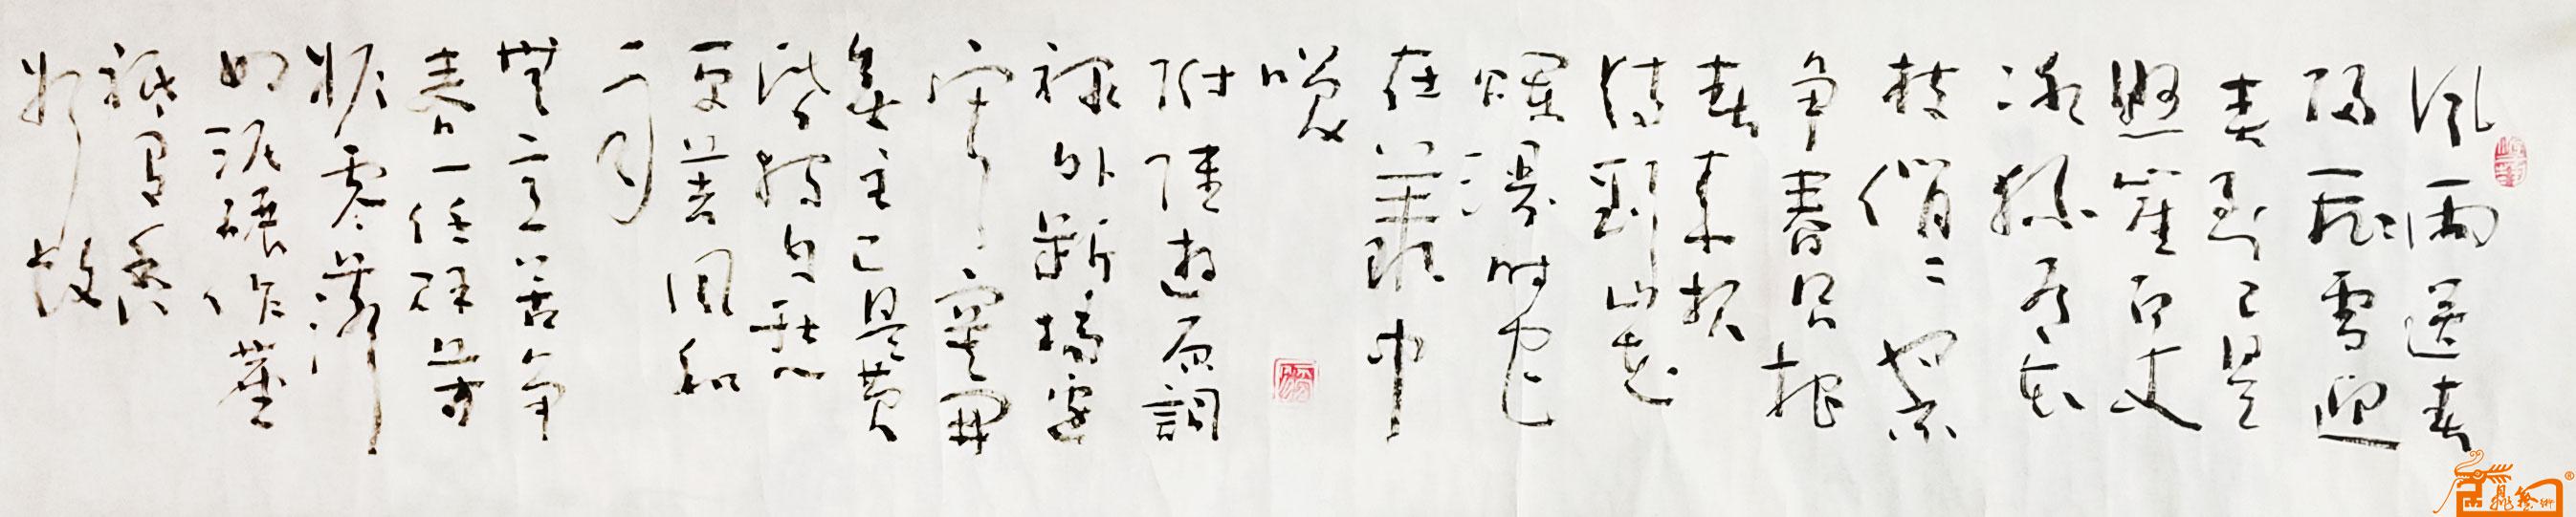 風雨送春
歸飛雪迎
春到已是
懸崖百丈
冰猶有花
枝俏〻也不
争春只把
春来报
待到山花
爛漫時她
在叢中
笑
附陸遊原詞
驛外斷橋邊
寂寞開
無主已是黄
昏獨自愁
更著風和
雨
無意苦争
春一任群芳
妒零落
成泥碾作塵
祗有香
如故